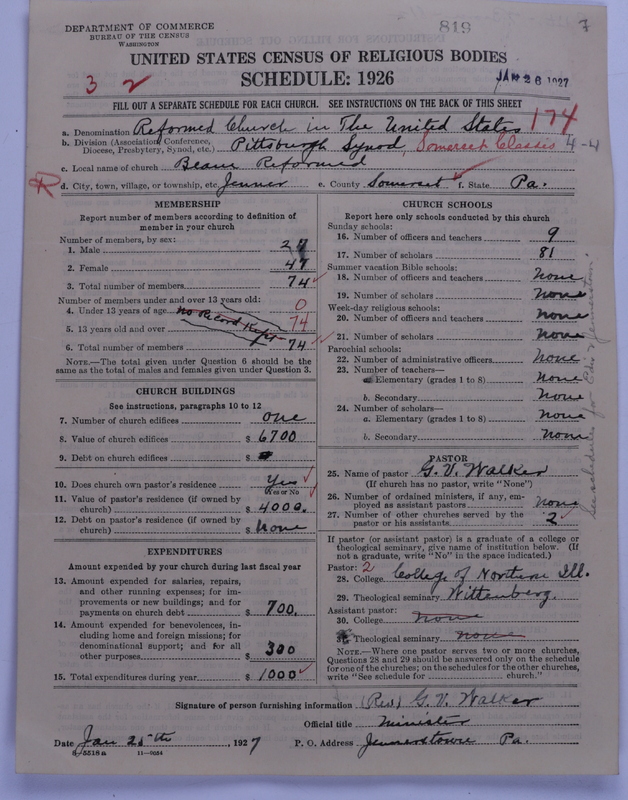 DEPARTMENT OF COMMERCE
BUREAU OF THE CENSUS
WASHINGTON
819
7
UNITED STATES CENSUS OF RELIGIOUS BODIES
SCHEDULE: 1926
3 2
JAN 26 1927
FILL OUT A SEPARATE SCHEDULE FOR EACH CHURCH. SEE INSTRUCTIONS ON THE BACK OF THIS SHEET
174
a. Denomination Reformed Church in The United States
b. Division (Association, Conference, Diocese, Presbytery, Synod, etc.) Pittsburgh Synod, Somerset Classes 4-4
c. Local name of church Beam Reformed
d. City, town, village, or township, etc. Jenner e. County Somerset f. State Pa.
MEMBERSHIP
Report number of members according to definition of
member in your church
Number of members, by sex:
1. Male 27
2. Female 47
3. Total number of members 74
Number of members under and over 13 years old:
4. Under 13 years of age 0
no Record Kept
5. 13 years old and over 74
6. Total number of members 74
NOTE.—The total given under Question 6 should be the
same as the total of males and females given under Question 3.
CHURCH BUILDINGS
See instructions, paragraphs 10 to 12
7. Number of church edifices one
8. Value of church edifices $ 6700
9. Debt on church edifices $
10. Does church own pastor's residence Yes
Yes or No
11. Value of pastor's residence (if owned by
church) $ 4000.
12. Debt on pastor's residence (if owned by
church) $ None
EXPENDITURES
Amount expended by your church during last fiscal year
13. Amount expended for salaries, repairs,
and other running expenses; for im-
provements or new buildings; and for
payments on church debt $ 700.
14. Amount expended for benevolences, in-
cluding home and foreign missions; for
denominational support; and for all
other purposes $ 300
15. Total expenditures during year $ 1000
CHURCH SCHOOLS
Report here only schools conducted by this church
Sunday schools:
16. Number of officers and teachers 9
17. Number of scholars 81
Summer vacation Bible schools:
18. Number of officers and teachers None
19. Number of scholars None
Week-day religious schools:
20. Number of officers and teachers None
21. Number of scholars None
Parochial schools:
22. Number of administrative officers None
23. Number of teachers—
a. Elementary (grades 1 to 8) None
b. Secondary None
24. Number of scholars—
a. Elementary (grades 1 to 8) None
b. Secondary None
PASTOR
25. Name of pastor G. V. Walker
(If church has no pastor, write "None")
26. Number of ordained ministers, if any, em-
ployed as assistant pastors None
27. Number of other churches served by the
pastor or his assistants 2
If pastor (or assistant pastor) is a graduate of a college or
theological seminary, give name of institution below. (If
not a graduate, write "No" in the space indicated.)
Pastor: 2
28. College College of Northern Ill.
29. Theological seminary Wittenberg.
Assistant pastor:
30. College None
31. Theological seminary None
NOTE.—Where one pastor serves two or more churches,
Questions 28 and 29 should be answered only on the schedule
for one of the churches; on the schedules for the other churches,
write "See schedule for church."
Signature of person furnishing information (Rev) G. V. Walker
Official title Minister
Date Jan 25th, 1927 P. O. Address Jennerstown Pa.
8-5518a 11—9054